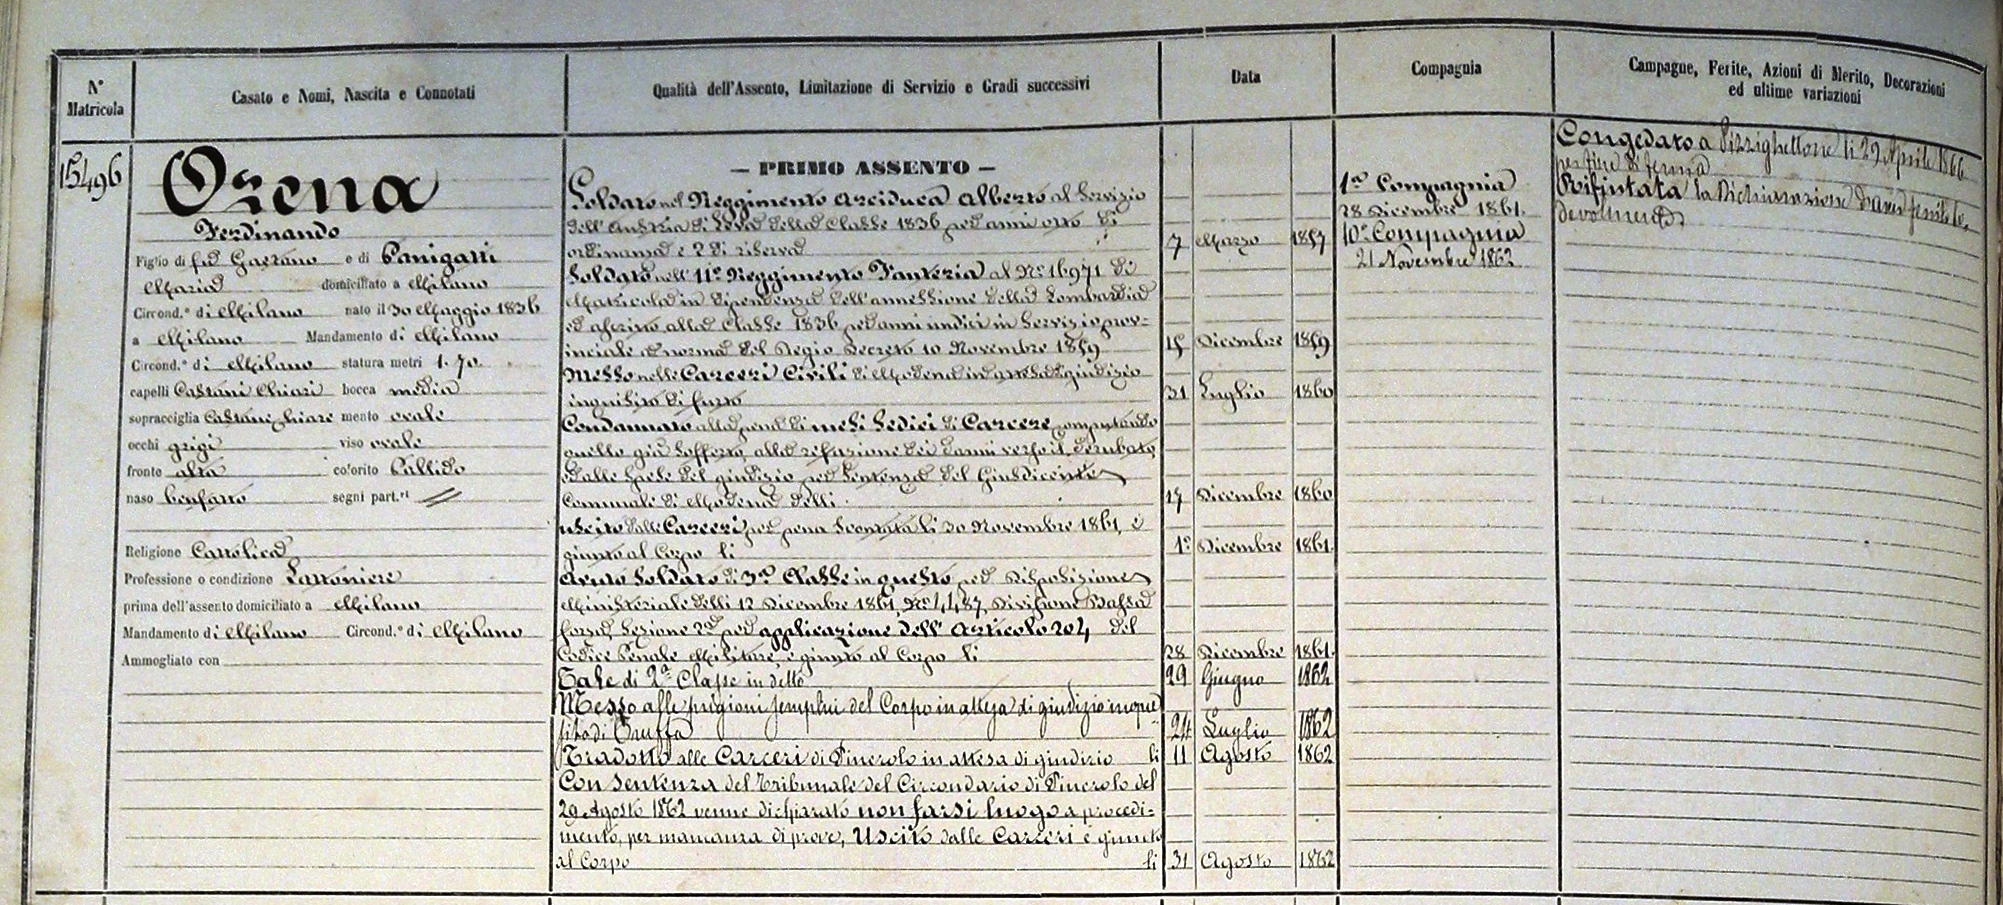 N° Matricola
Casato e Nomi, Nascita e Connotati
Qualità dell'Assento, Limitazione di Servizio e Gradi successivi
Data
Compagnia
Campagne, Ferite, Azioni di Merito, Decorazioni
ed ultime variazioni
15496
Orena
Ferdinando
Figlio di fu Gaetano e di Panigatti
Maria domiciliato a Milano
Circond.° di Milano nato il 30 Maggio 1836
a Milano Mandamento di Milano
Circond.° di Milano statura metri 1.70
capelli Castani Chiari bocca media
sopracciglia Castane chiare mento ovale
occhi grigi viso ovale
fronte alta colorito Pallido
naso benfatto segni part.ri //
Religione Cattolica
Professione o condizione Lattoniere
prima dell'assento domiciliato a Milano
Mandamento di Milano Circond.° di Milano
Ammogliato con
— PRIMO ASSENTO —
Soldato nel Reggimento Arciduca Alberto al Servizio
dell'Austria di Leva della Classe 1836 per anni otto di
ordinanza e 2 di riserva 7 Marzo 1857
Soldato nell'11° Reggimento Fanteria al N° 16971 di
Matricola in dipendenza dell'annessione della Lombardia
ed ascritto alla Classe 1836 per anni undici in Servizio prov-
inciale a norma del Regio Decreto 10 Novembre 1859 15 Dicembre 1859
Messo nelle Carceri Civili di Modena in attesa di giudizio
inquisito di furto 31 Luglio 1860
Condannato alla pena di mesi Sedici di Carcere computando
quello già Sofferto, alla refusione dei danni verso il derubato
e dalle Spese del giudizio per Sentenza del Giusdicente
Comunale di Modena delli 17 Dicembre 1860
Uscito dalle Carceri per pena Scontata li 30 Novembre 1861, e
giunto al Corpo li 1° Dicembre 1861.
Avuto Soldato di 3ª Classe in questo per disposizione
Ministeriale delli 12 Dicembre 1861, N° 4487, Divisione Bassa
forza, Sezione 2ª per applicazione dell'Articolo 204 del
Codice Penale Militare, e giunto al Corpo li 28 Dicembre 1861.
Tale di 2ª Classe in detto 29 Giugno 1862
Messo alle prigioni semplici del Corpo in attesa di giudizio inqui-
sito di Truffa 24 Luglio 1862
Tradotto alle Carceri di Pinerolo in attesa di giudizio li 11 Agosto 1862
Con sentenza del Tribunale del Circondario di Pinerolo del
29 Agosto 1862 venne dichiarato non farsi luogo a procedi-
mento, per mancanza di prove, Uscito dalle Carceri e giunto
al Corpo li 31 Agosto 1862
1ª Compagnia
28 Dicembre 1861.
10ª Compagnia
21 Novembre 1862
Congedato a Pizzighettone li 29 Aprile 1866
per fine di ferma
Rifiutata la Dichiarazione d'aver servito